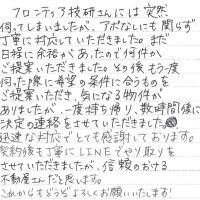 フロンティア技研さんには突然
伺ってしまいましたが、アポなしにも関らず
丁寧に対応していただきました。まだ
日程に余裕があったので何件か
ご提案いただきました。その後もう一度
伺った際に希望の条件に合うものを
ご提案いただき、気になる物件が
ありましたが、一度持ち帰り、数時間後に
決定の連絡をさせていただきました。
迅速な対応でとても感謝しております。
契約後も丁寧にLINEでやり取りを
させていただきましたが、信頼のおける
不動産さんだと思います。
これからもどうぞよろしくお願いいたします!